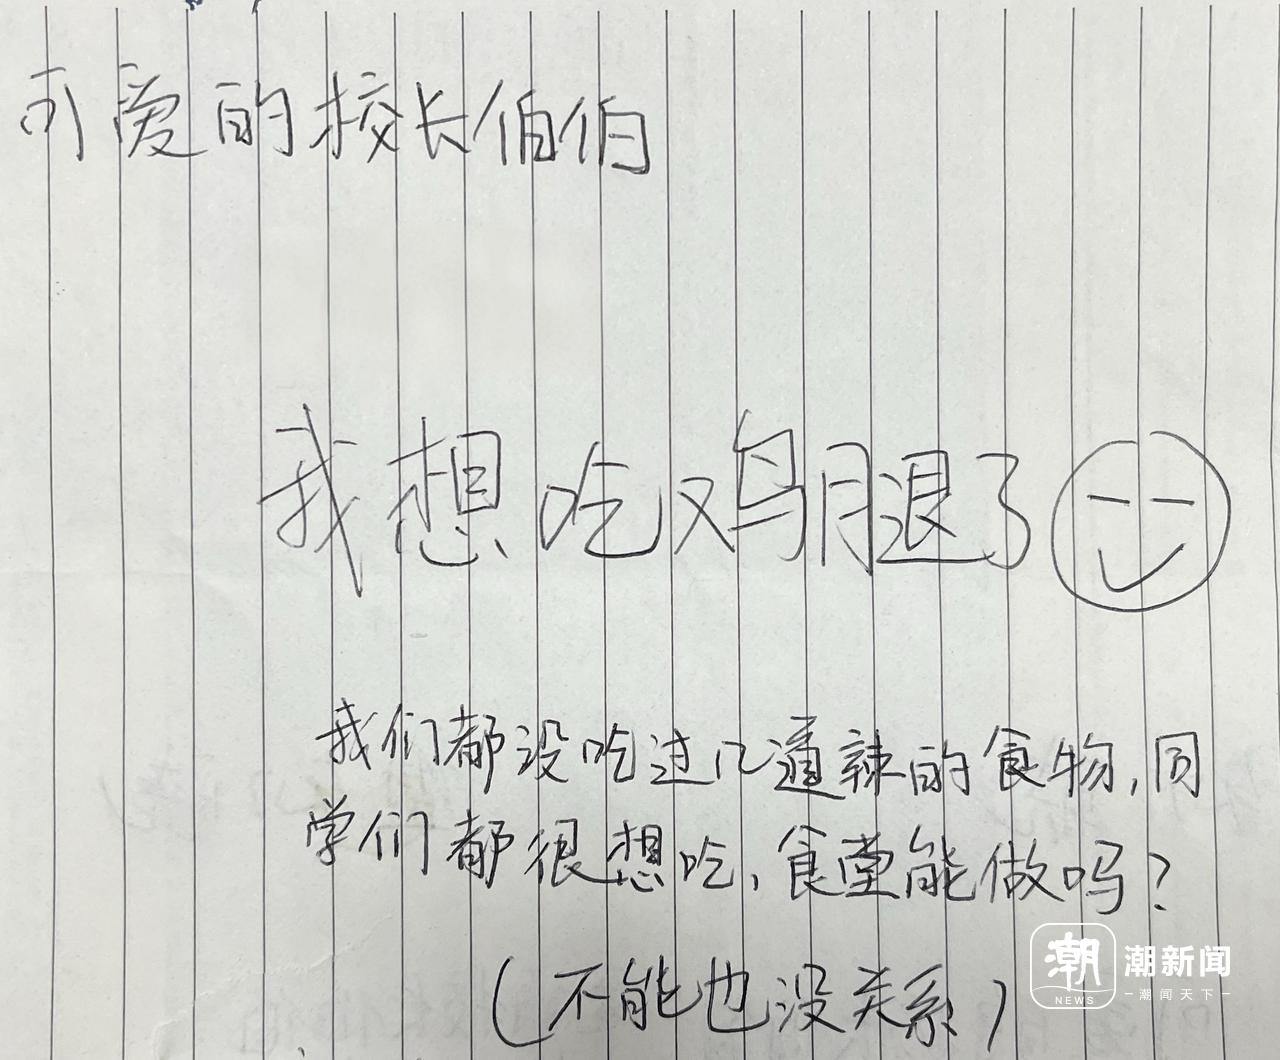 可爱的校长伯伯
我想吃鸡腿了
我们都没吃过几道辣的食物,同
学们都很想吃,食堂能做吗?
(不能也没关系)
潮 NEWS 潮新闻
潮闻天下